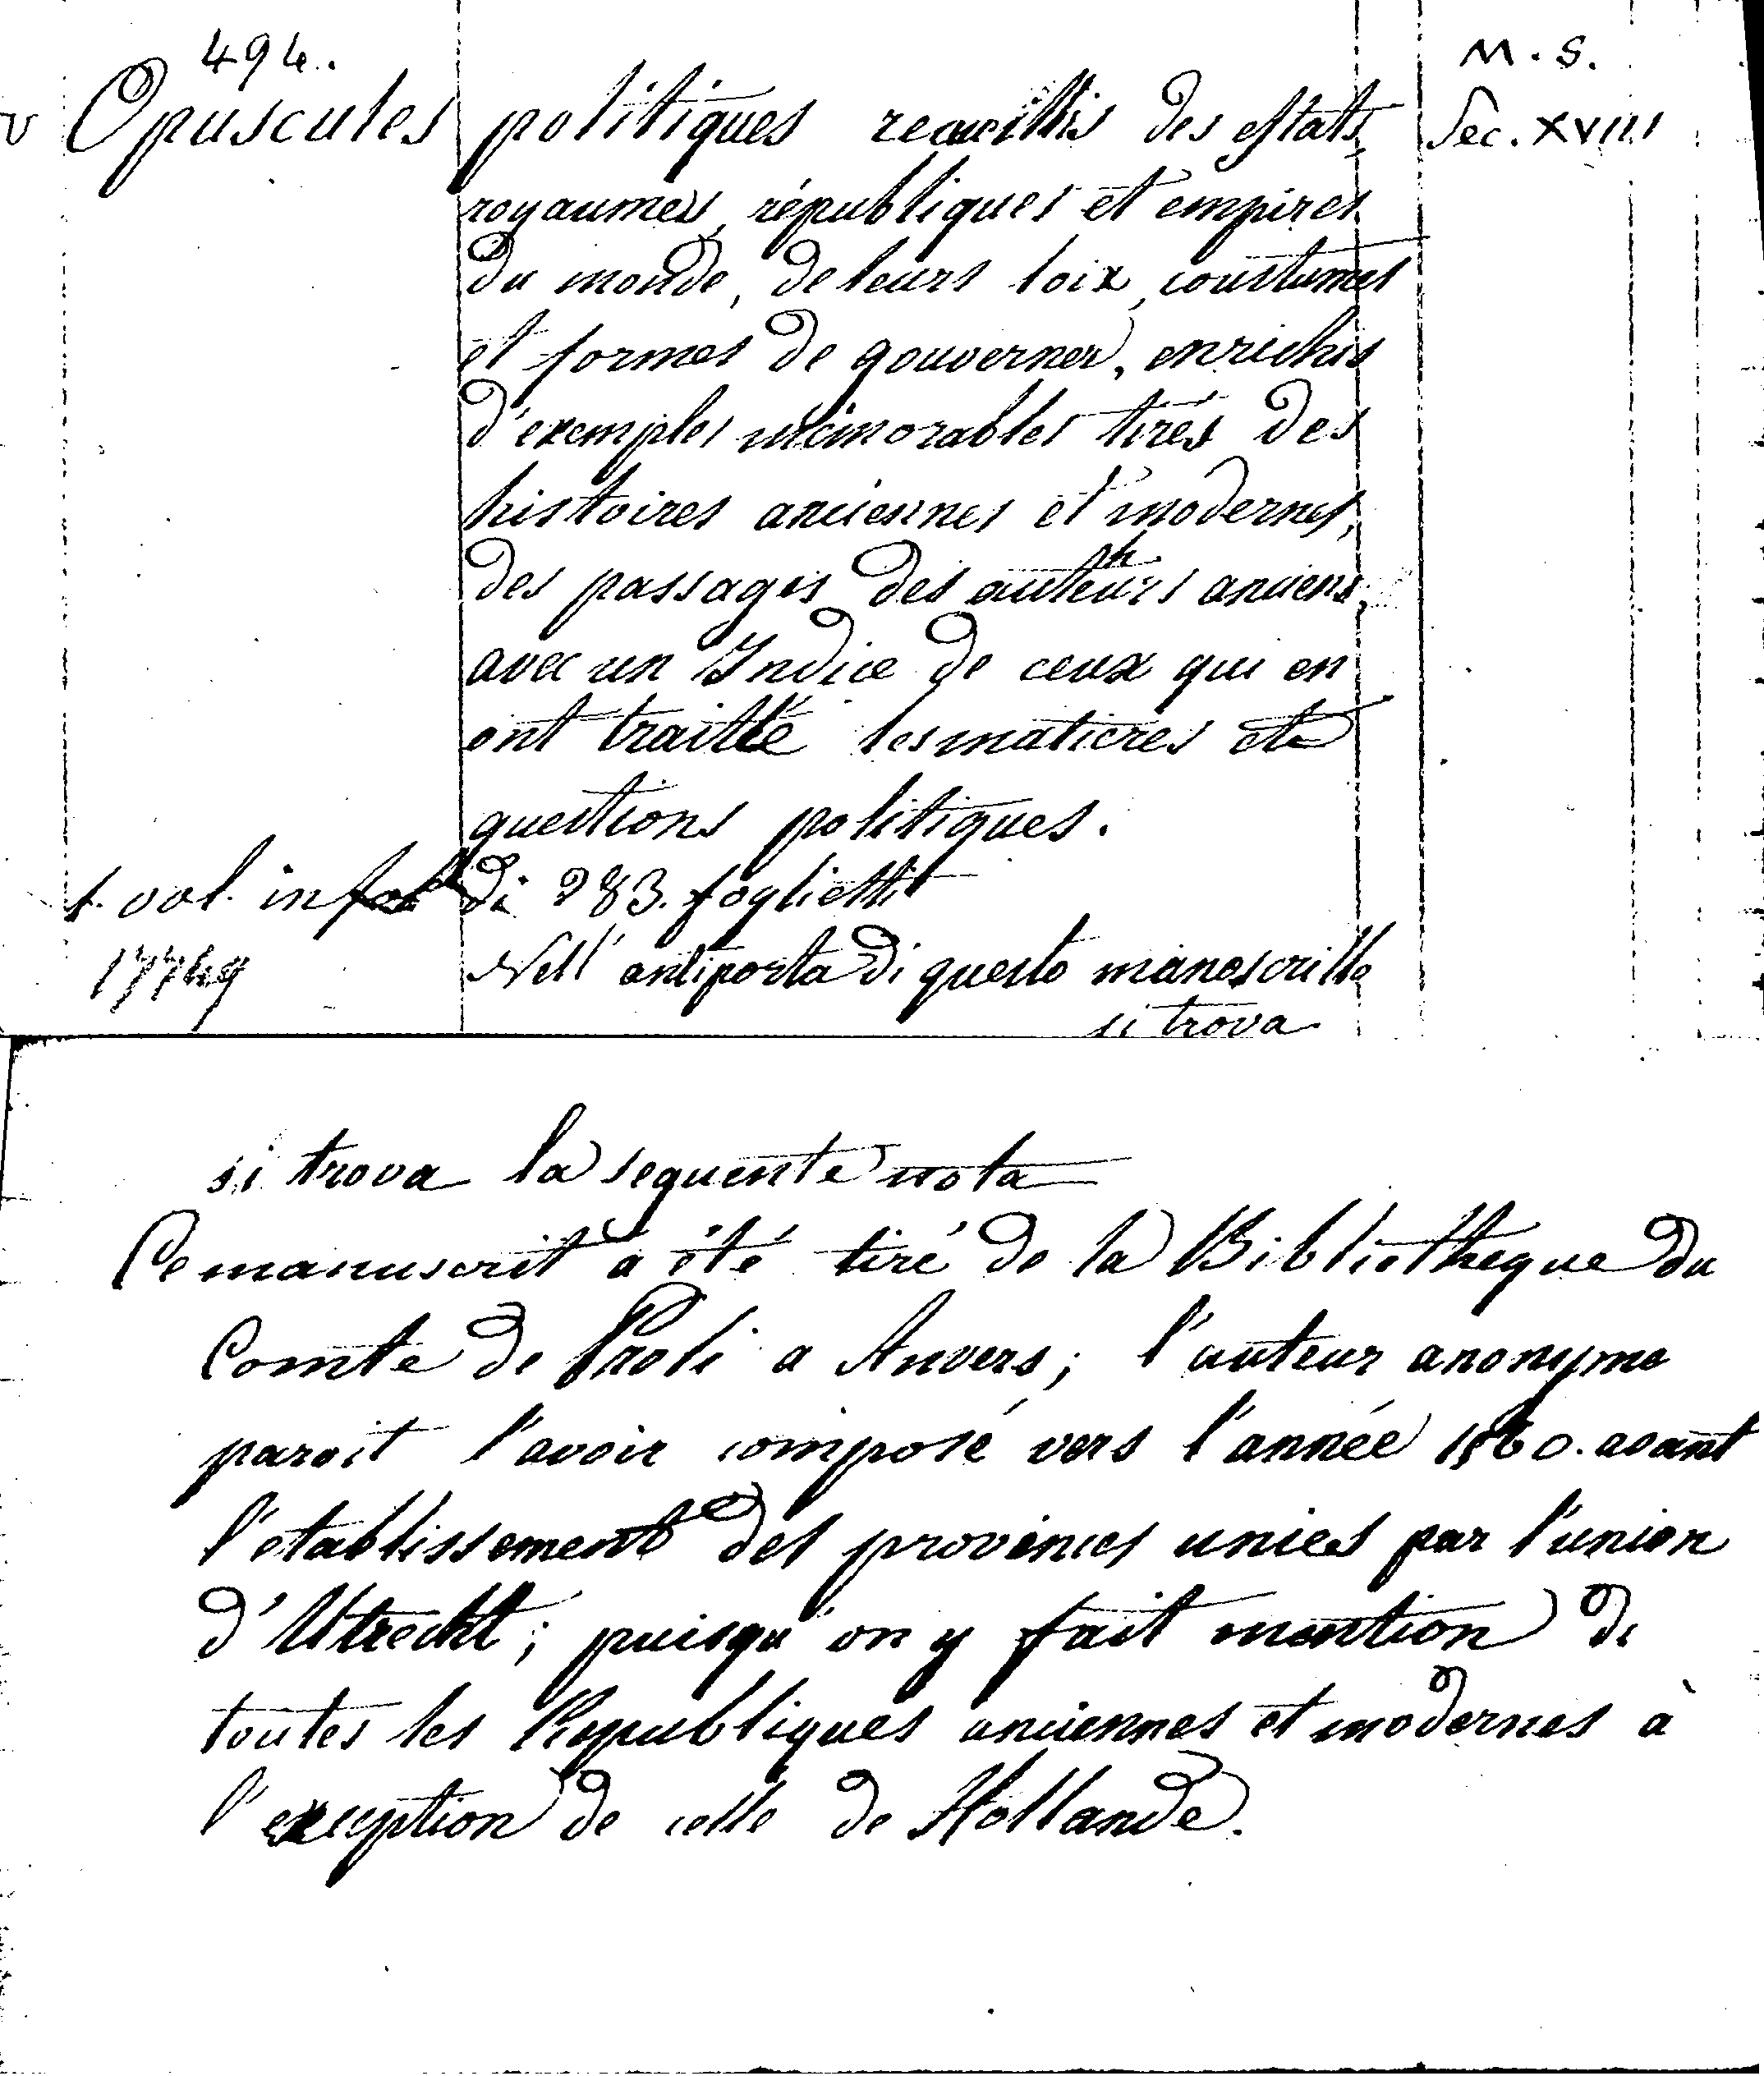 494.
M. S.
v Opuscules politiques recueillis des estats, Sec. XVIII
royaumes, républiques et empires
du monde, de leurs loix, coustumes
et formes de gouverner, enrichis
d'exemples mémorables tirés des
histoires anciennes et modernes,
des passages des autheurs anciens,
avec un Indice de ceux qui en
ont traitté les matieres et
questions politiques.
1. vol. in fol di 283. foglietti
17749 Nell' antiporta di questo manoscritto
si trova
si trova la seguente nota
Ce manuscrit a été tiré de la Bibliotheque du
Comte de Proli a Anvers; l'auteur anonyme
paroit l'avoir composé vers l'année 1560. avant
l'etablissement des provinces unies par l'union
d'Utrecht; puisqu'on y fait mention de
toutes les Republiques anciennes et modernes à
l'exception de celle de Hollande.